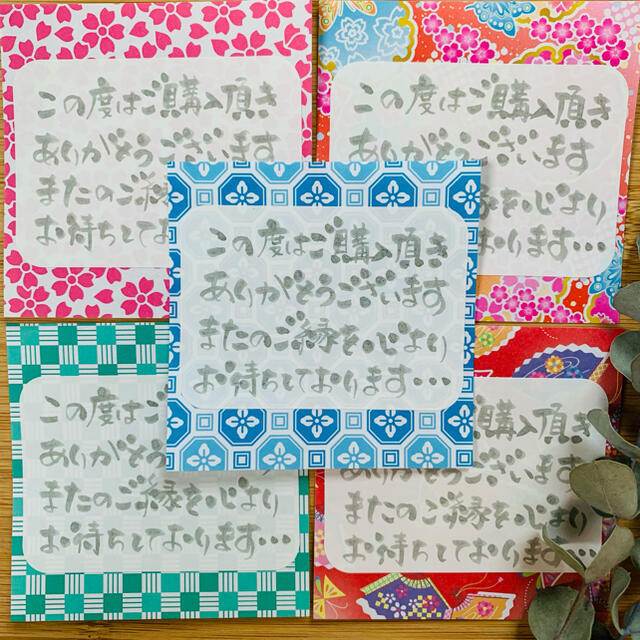 この度はご購入頂き
ありがとうございます
またのご縁
お待ちしてお
この度はご購入頂き
ありがとうございます
を心より
おります…
この度はご購入頂き
ありがとうございます
またのご縁を心より
お待ちしております…
この度は
ありがと
またのご縁を心より
お待ちしております…
購入頂き
ございます
またのご縁を心より
お待ちしております…